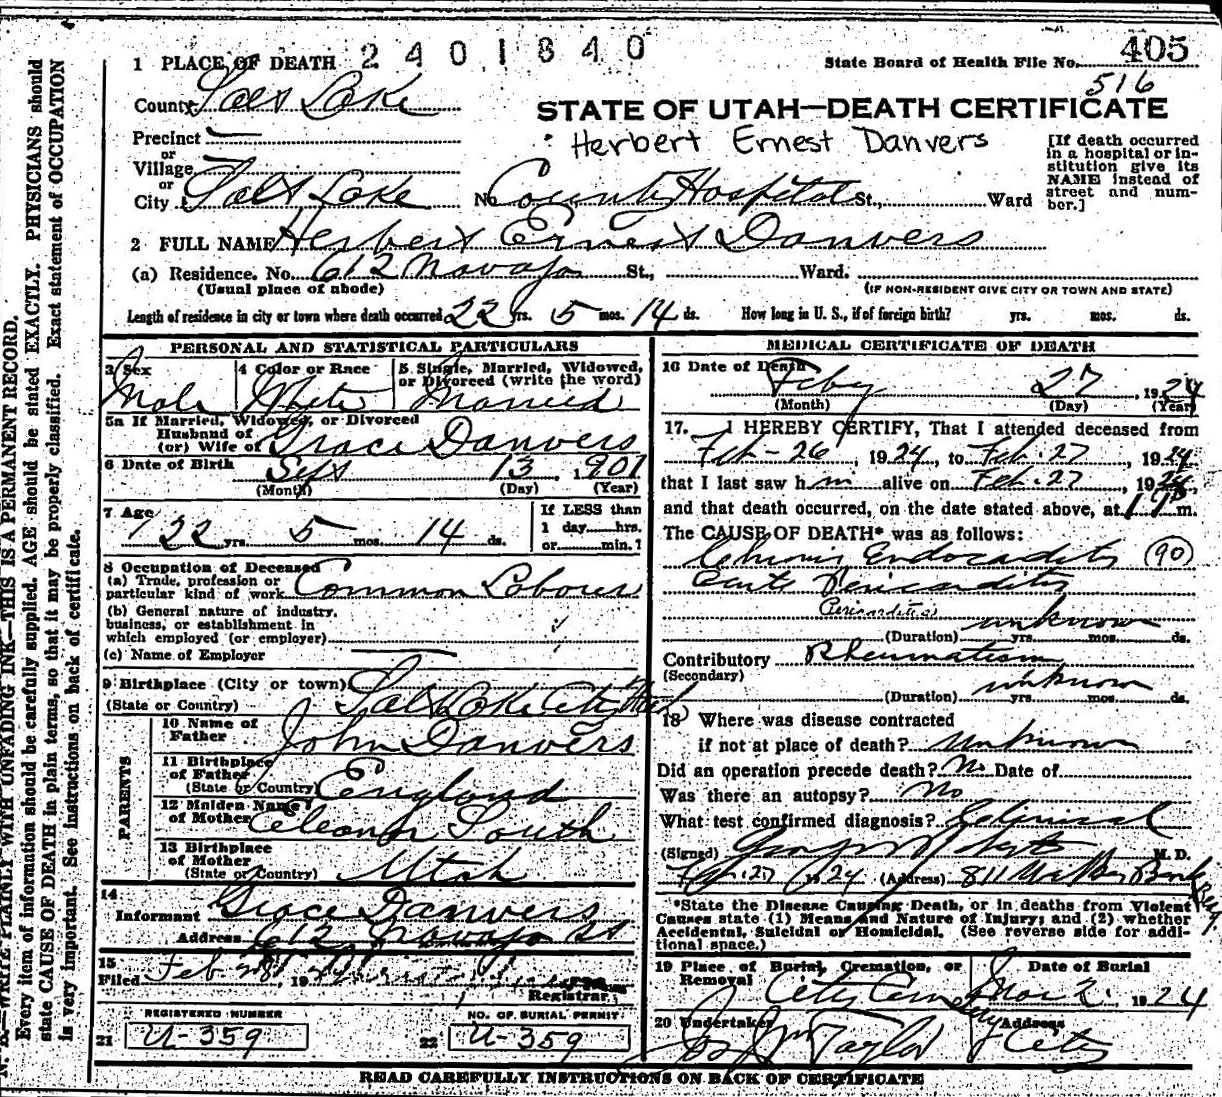 2401840
405
1 PLACE OF DEATH
State Board of Health File No.
516
County Salt Lake
STATE OF UTAH—DEATH CERTIFICATE
Precinct
Herbert Ernest Danvers
or
Village
or
City Salt Lake No County Hospital St., Ward
[If death occurred
in a hospital or in-
stitution give its
NAME instead of
street and num-
ber.]
2 FULL NAME Herbert Ernest Danvers
(a) Residence. No. 612 Navajo St., Ward.
(Usual place of abode) (IF NON-RESIDENT GIVE CITY OR TOWN AND STATE)
Length of residence in city or town where death occurred 22 yrs. 5 mos. 14 ds. How long in U. S., if of foreign birth? yrs. mos. ds.
PERSONAL AND STATISTICAL PARTICULARS
3 Sex 4 Color or Race 5 Single, Married, Widowed,
or Divorced (write the word)
Male White Married
5a If Married, Widowed, or Divorced
Husband of
(or) Wife of Grace Danvers
6 Date of Birth Sept 13, 1901
(Month) (Day) (Year)
7 Age
22 yrs. 5 mos. 14 ds.
If LESS than
1 day hrs.
or min.?
8 Occupation of Deceased
(a) Trade, profession or
particular kind of work Common Laborer
(b) General nature of industry,
business, or establishment in
which employed (or employer)
(c) Name of Employer
9 Birthplace (City or town) Salt Lake City Utah
(State or Country)
PARENTS
10 Name of
Father John Danvers
11 Birthplace
of Father
(State or Country) England
12 Maiden Name
of Mother Eleanor South
13 Birthplace
of Mother
(State or Country) Utah
14
Informant Grace Danvers
Address 612 Navajo St
15
Filed Feb 28, 19
Registrar
REGISTERED NUMBER NO. OF BURIAL PERMIT
21 U-359 22 U-359
MEDICAL CERTIFICATE OF DEATH
16 Date of Death
Feby 27, 1924
(Month) (Day) (Year)
17. I HEREBY CERTIFY, That I attended deceased from
Feb-26, 1924, to Feb. 27, 1924
that I last saw h m alive on Feb. 27, 1924
and that death occurred, on the date stated above, at m.
The CAUSE OF DEATH* was as follows:
Chronic Endocarditis (90)
Acute Pericarditis
Pericarditis
unknown
(Duration) yrs. mos. ds.
Contributory Rheumatism
(Secondary)
unknown
(Duration) yrs. mos. ds.
18 Where was disease contracted
if not at place of death? Unknown
Did an operation precede death? No Date of
Was there an autopsy? No
What test confirmed diagnosis? Clinical
(Signed) M. D.
Feb. 27, 1924 (Address) 811 Walker Bank Bldg
*State the Disease Causing Death, or in deaths from Violent
Causes state (1) Means and Nature of Injury; and (2) whether
Accidental, Suicidal or Homicidal. (See reverse side for addi-
tional space.)
19 Place of Burial, Cremation, or Date of Burial
Removal
City Cemetery Mar 2. 1924
20 Undertaker Address
Jos Wm Taylor City
READ CAREFULLY INSTRUCTIONS ON BACK OF CERTIFICATE
N. B.—WRITE PLAINLY WITH UNFADING INK—THIS IS A PERMANENT RECORD.
Every item of information should be carefully supplied. AGE should be stated EXACTLY. PHYSICIANS should
state CAUSE OF DEATH in plain terms, so that it may be properly classified. Exact statement of OCCUPATION
is very important. See instructions on back of certificate.